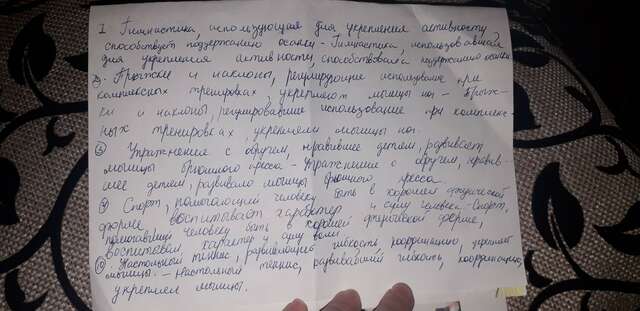 1 Гимнастика, использующая для укрепления активность,
способствует поддержанию осанки - Гимнастика, использовавшая
для укрепления активность, способствовала поддержанию осанки
Прыжки и наклоны, регулирующие использование при
комплексных тренировках, укрепляют мышцы ног - Прыж-
ки и наклоны, регулировавшие использование при комплекс-
ных тренировках укрепляли мышцы ног.
Упражнения с обручем, нравившие детям, развивает
мышцы брюшного пресса - Упражнение с обручем, нравив-
шее детям, развивало мышцы брюшного пресса.
Спорт, помогающий человеку быть в хорошей физической
форме, воспитывает характер и силу человека - Спорт,
помогавший человеку быть в хорошей физической форме,
воспитывал характер и силу воли.
Настольный теннис, развивающий гибкость, координацию, укрепляет
мышцы. - Настольный теннис, развивавший гибкость, координацию,
укреплял мышцы.